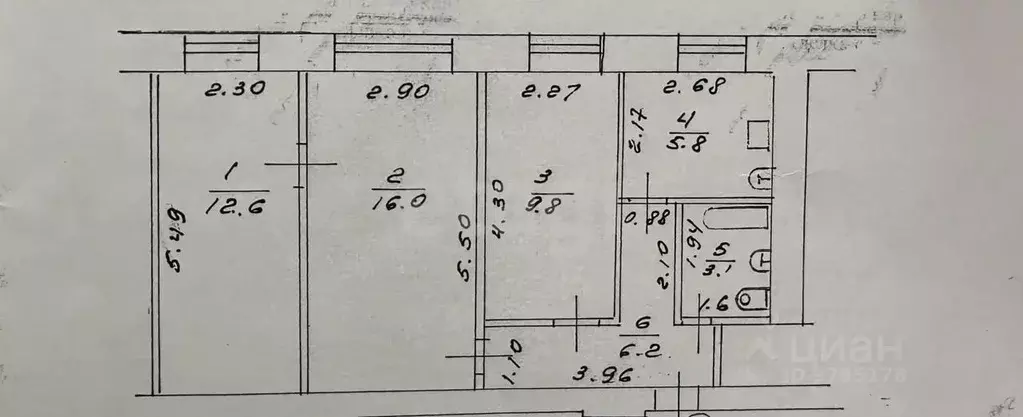 2.30
2.90
2.27
2.68
2.17
4
5.8
1
12.6
2
16.0
3
9.8
5.49
5.50
4.30
0.88
2.10
1.94
5
3.1
1.6
6
6.2
1.10
3.96
циан